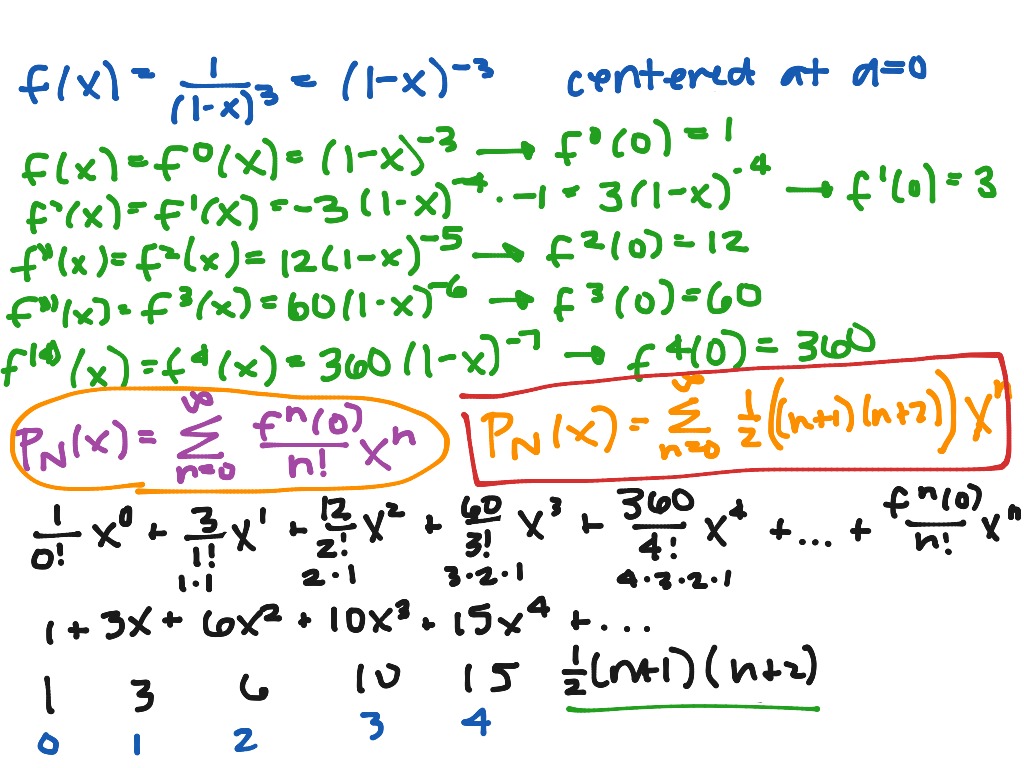 f(x) = 1/(1-x)^3 = (1-x)^-3 centered at a=0
f(x) = f^0(x) = (1-x)^-3 → f^0(0) = 1
f'(x) = f^1(x) = -3(1-x)^-4 · -1 = 3(1-x)^-4 → f^1(0) = 3
f''(x) = f^2(x) = 12(1-x)^-5 → f^2(0) = 12
f'''(x) = f^3(x) = 60(1-x)^-6 → f^3(0) = 60
f^(4)(x) = f^4(x) = 360(1-x)^-7 → f^4(0) = 360
P_N(x) = ∑_{n=0}^∞ f^n(0)/n! x^n P_N(x) = ∑_{n=0}^∞ 1/2((n+1)(n+2))x^n
1/0! x^0 + 3/1! x^1 + 12/2! x^2 + 60/3! x^3 + 360/4! x^4 + ... + f^n(0)/n! x^n
1·1 2·1 3·2·1 4·3·2·1
1 + 3x + 6x^2 + 10x^3 + 15x^4 + ...
1 3 6 10 15 1/2(n+1)(n+2)
0 1 2 3 4